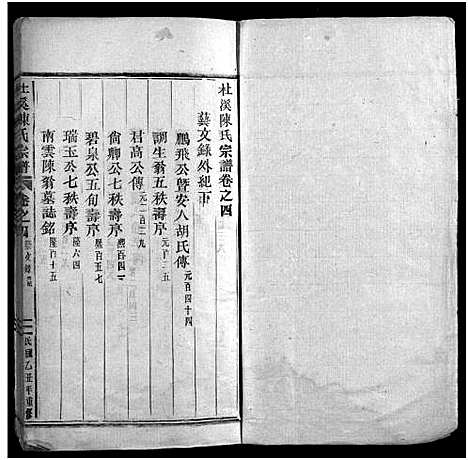 杜溪陳氏宗譜卷之四
藝文錄外紀下
鵬飛公暨安人胡氏傳 元百四十四
調生翁五秩壽序
村高公傳
尙卿公七秩壽序 熙百四二
碧泉公五旬壽序 熙百五七
瑞玉公七秩壽序 陸六四
南雲陳翁墓誌銘 陸百十五
杜溪陳氏宗譜 卷之四
民國乙丑年重修